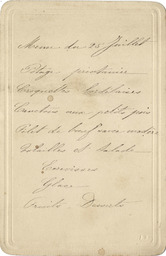 Menu du 25 Juillet
Potage printanier
Croquettes
aux petits pois
Filet de bœuf sauce madère
Volailles et Salade
Ecrevisses
Glace
Fruits Desserts